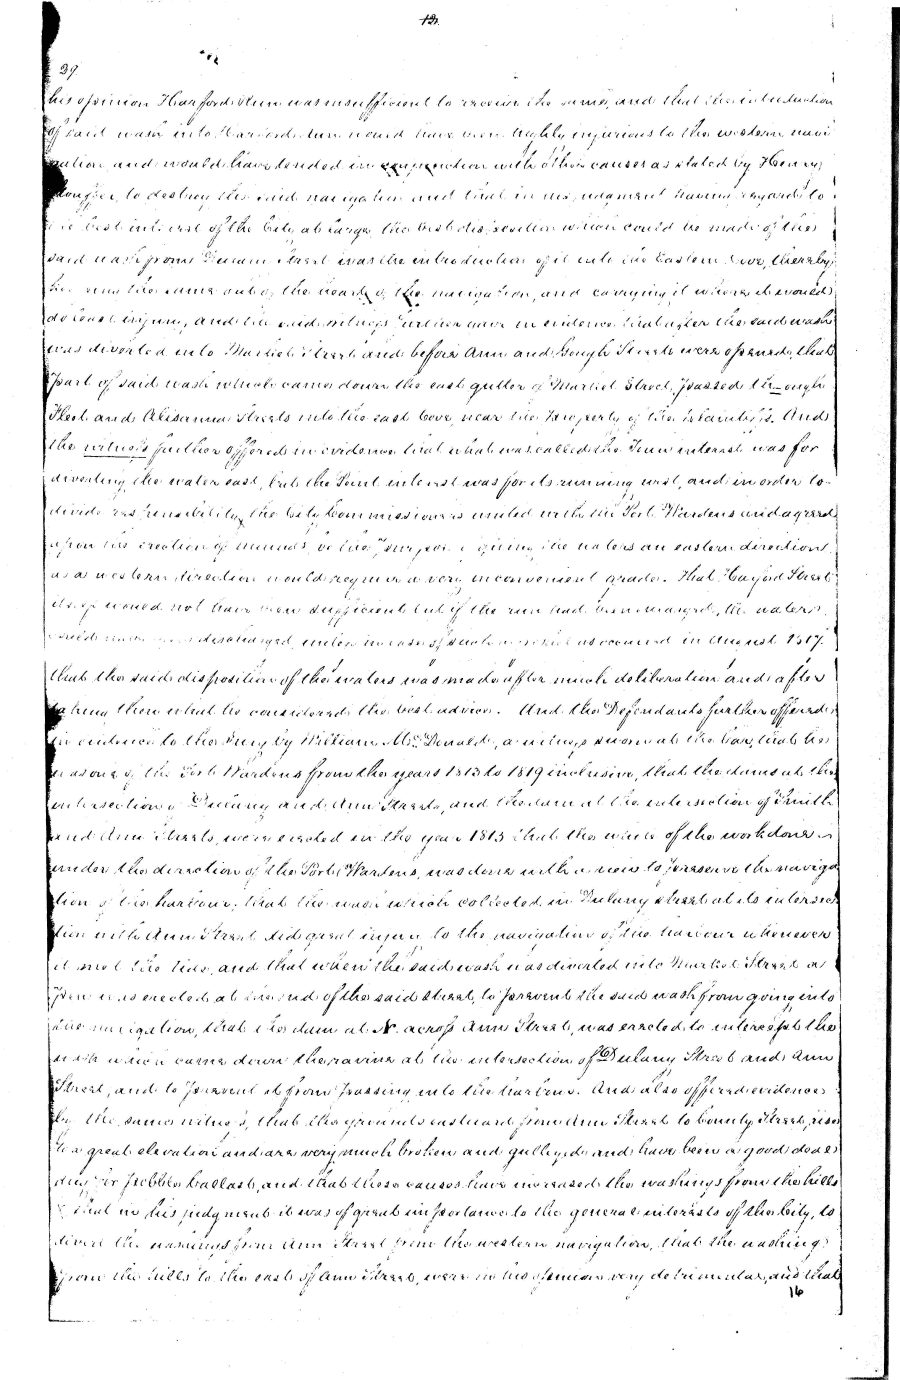 12.
39
his opinion Harford Run was insufficient to receive the same, and that the introduction
of said wash into Harford run would have been highly injurious to the western navi
gation, and would have tended in conjunction with other causes as stated by Henry
Stouffer, to destroy the said navigation and that in his judgment having regard to
the best interest of the City at large, the best disposition which could be made of the
said wash from Dulany Street was the introduction of it into the Eastern Cove, thereby
the same out of the head of the navigation, and carrying it where it would
do least injury, and the said witness further gave in evidence that after the said wash
was diverted into Market Street and before Ann and Gough Streets were opened, that
part of said wash which came down the east gutter of Market Street, passed through
Fleet and Alisanna Streets into the east Cove, near the property of the plaintiffs. And
the witness further offered in evidence that what was called the Town interest was for
diverting the water east, but the Point interest was for its running west, and in order to
divide responsibility, the City Commissioners united with the Port Wardens and agreed
upon the erection of mounds for the purpose of giving the waters an eastern direction,
as a western direction would require a very inconvenient grade. That Harford Street
would not have been sufficient but if the run had been enlarged, the waters
could have been discharged, unless in case of such a as occurred in August 1817.
that the said disposition of the waters was made after much deliberation and after
taking then what he considered the best advice. And the Defendants further offered
in evidence to the Jury by William McDonald, a witness sworn at the bar, that he
was one of the Port Wardens from the years 1813 to 1819 inclusive, that the dams at the
intersection of Dulany and Ann Streets, and the dam at the intersection of Smith
and Ann Streets, were erected in the year 1813 that the whole of the work done
under the direction of the Port Wardens, was done with a view to preserve the naviga
tion of the harbour; that the wash which collected in Dulany street at its intersec
tion with Ann Street did great injury to the navigation of the harbour whenever
it met the tide, and that when the said wash was diverted into Market Street a
pen was erected at the end of the said street, to prevent the said wash from going into
the navigation, that the dam at N. across Ann Street, was erected to intercept the
wash which came down the ravine at the intersection of Dulany Street and Ann
Street, and to prevent it from passing into the harbour. And also offered evidence
by the same witness, that the grounds eastward from Ann Street to County Street, rise
to a great elevation and are very much broken and gullied, and have been a good deal
dug for pebble ballast, and that these causes have increased the washings from the hills
& that in his judgment it was of great importance to the general interests of the City, to
divert the washings from Ann Street from the western navigation, that the washings
from the hills to the east of Ann Street, were in his opinion very detrimental, and that
16